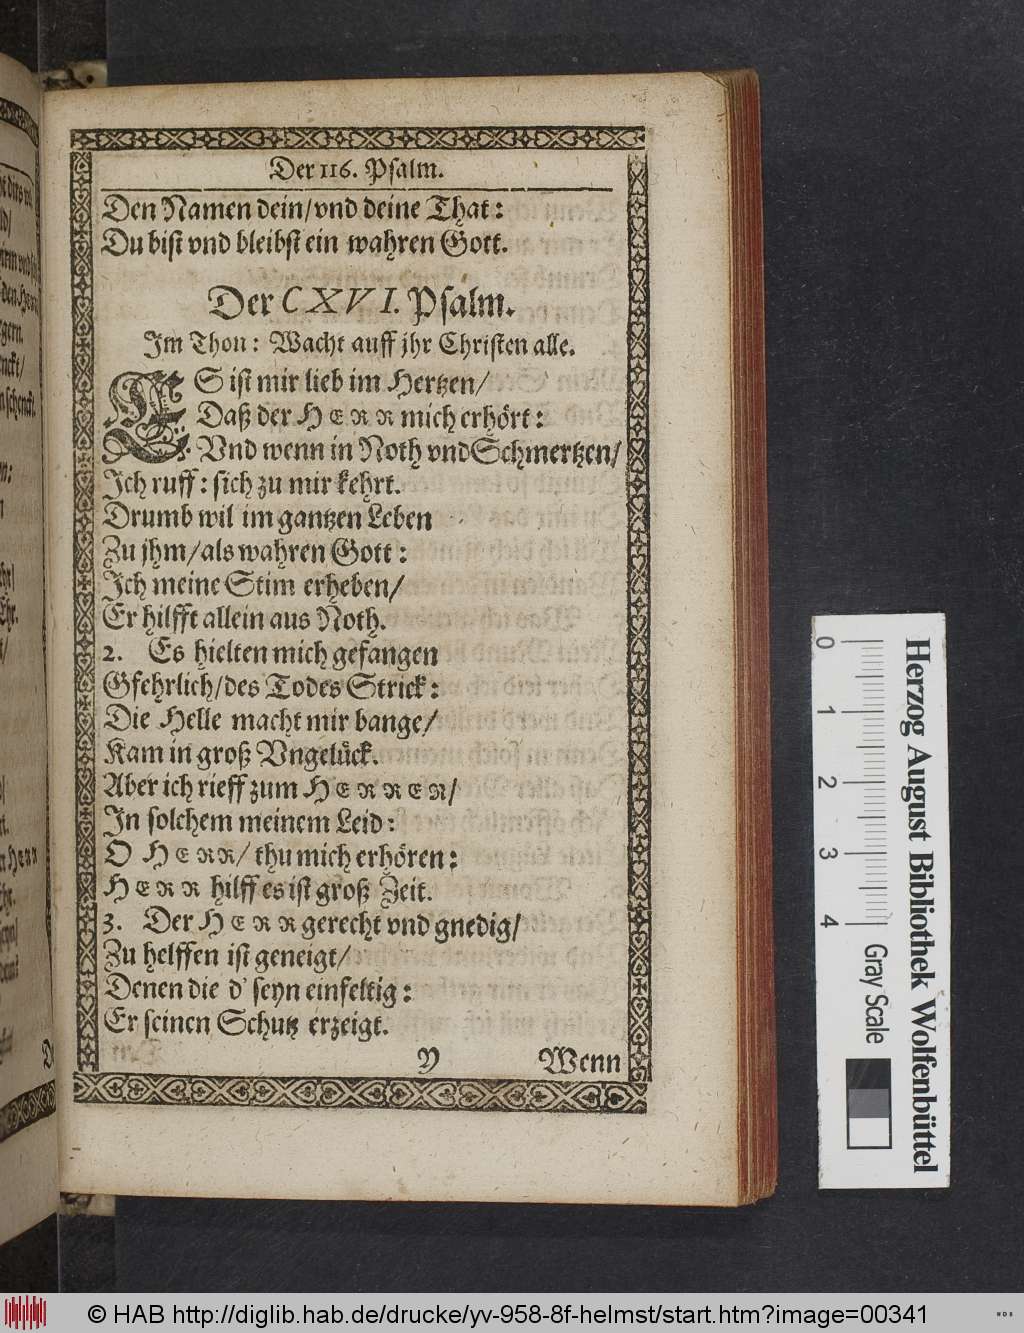 Der 116. Psalm.
Den Namen dein/vnd deine That:
Du bist vnd bleibst ein wahren Gott.
Der CXVI. Psalm.
Im Thon: Wacht auff jhr Christen alle.
ES ist mir lieb im Hertzen/
Daß der HERR mich erhört:
Vnd wenn in Noth vnd Schmertzen/
Ich ruff: sich zu mir kehrt.
Drumb wil im gantzen Leben
Zu jhm/als wahren Gott:
Ich meine Stim erheben/
Er hilfft allein aus Noth.
2. Es hielten mich gefangen
Gfehrlich/des Todes Strick:
Die Helle macht mir bange/
Kam in groß Vngelück.
Aber ich rieff zum HERREN/
In solchem meinem Leid:
O HERR/ thu mich erhören:
HERR hilff es ist groß Zeit.
3. Der HERR gerecht vnd gnedig/
Zu helffen ist geneigt/
Denen die d' seyn einfeltig:
Er seinen Schutz erzeigt.
Y Wenn
0 1 2 3 4
Herzog August Bibliothek Wolfenbüttel
Gray Scale
© HAB http://diglib.hab.de/drucke/yv-958-8f-helmst/start.htm?image=00341